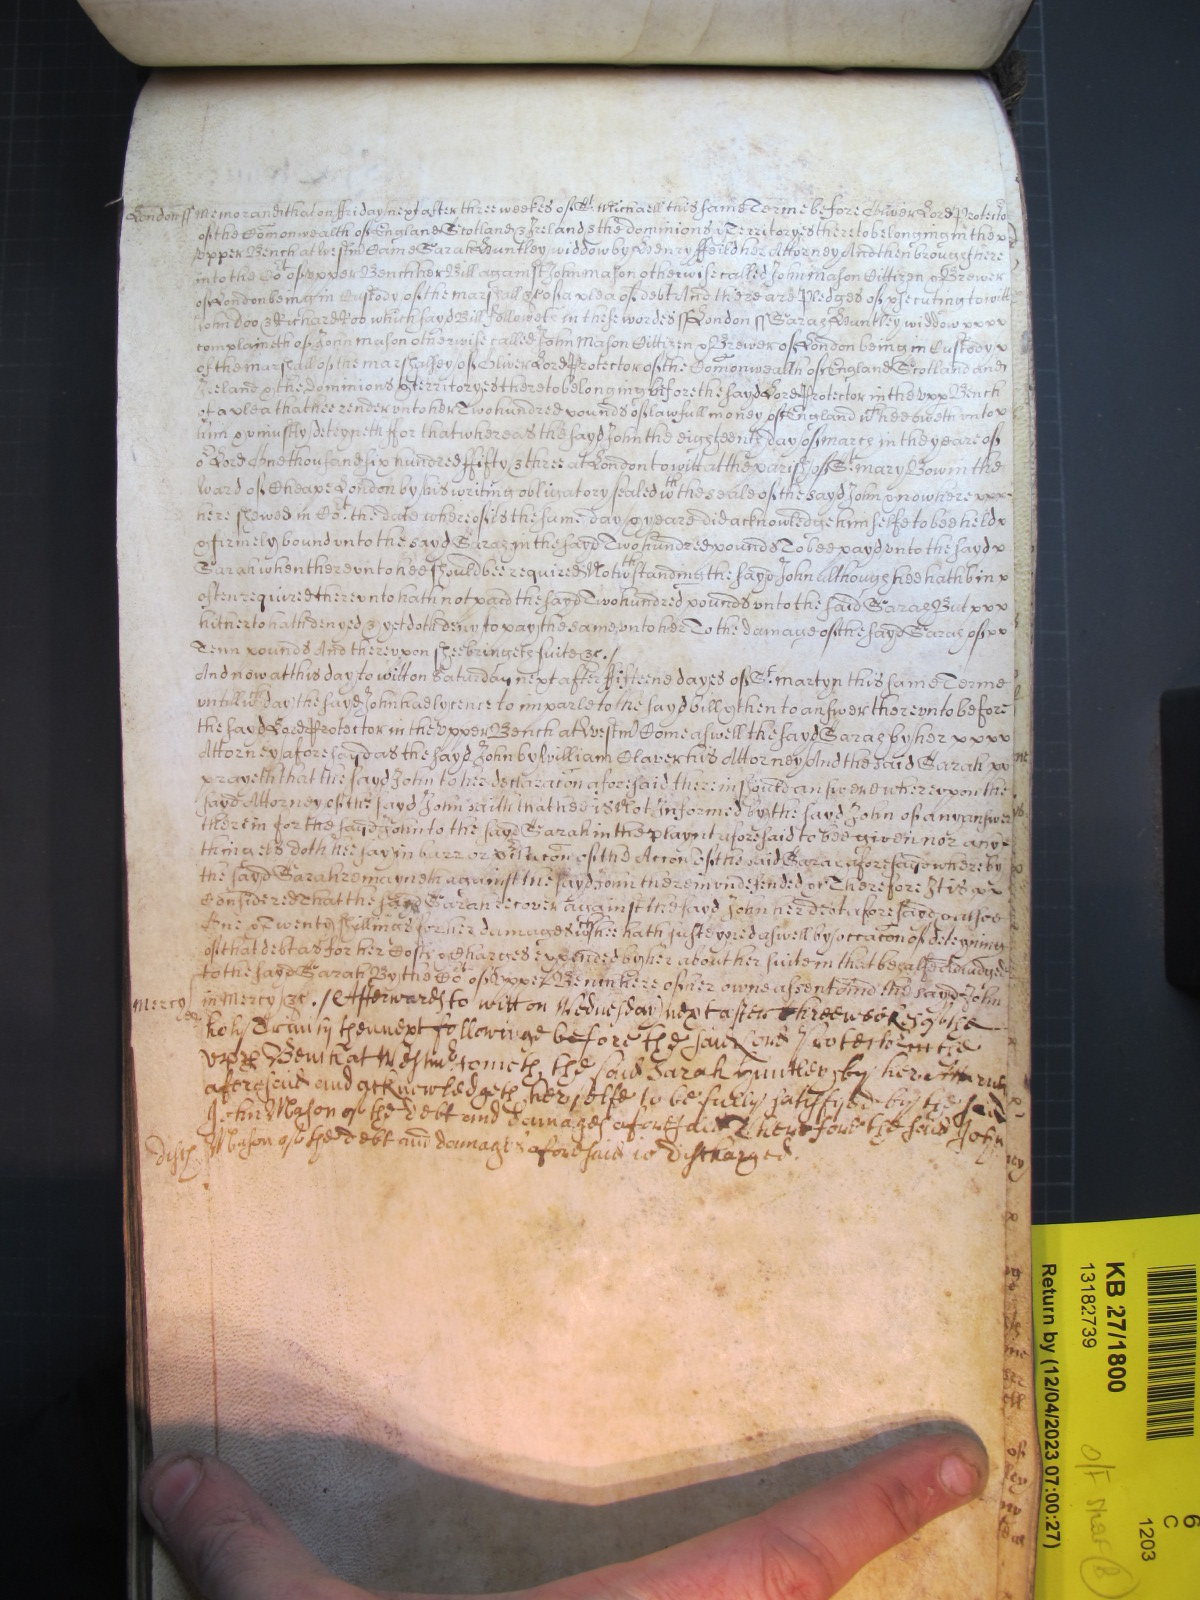 London ss Memorand that on ffriday next after three weekes of St. Michaell this same Terme before Oliver Lord Protector
of the Comonwealth of England Scotland & Ireland & the dominions & Territoryes thereto belonging in the x
Upper Bench at Westm Came Sarah Huntley widdow by Henry ffeild her Attorney And then brought here
into the Cot of Upper Bench her Bill against John Mason otherwise called John Mason Cittizen & Brewer
of London being in Custody of the marshall &c of a plea of debt And there are Pledges of psecuting to witt
John Doo & Richard Roo which sayd Bill followeth in these wordes ss London ss Sarah Huntley widdow xxxx
complaineth of John Mason otherwise called John Mason Cittizen & Brewer of London being in Custody x
of the marshall of the marshalsey of Oliver Lord Protector of the Comonwealth of England Scotland and
Ireland & the dominions & territoryes thereto belonging before the sayd Lord Protector in the upp Bench
of a plea that hee render unto her Two hundred pounds of lawfull money of England wch hee oweth unto x
him & uniustly deteyneth ffor that whereas the sayd John the eighteenth day of March in the yeare of
or Lord One thousand six hundred ffifty & three at London to witt at the parish of St. Mary Bow in the
Ward of Cheape London by his writing obligatory sealed wth the seale of the sayd John & now here xxx
here shewed in Cot the date whereof is the same day & yeare did acknowledge himselfe to bee held x
& firmely bound unto the sayd Sarah in the sayd Two hundred pounds To bee payd unto the sayd x
Sarah when thereunto hee should bee required Notwthstanding the sayd John although hee hath bin x
often required thereunto hath not paid the sayd Two hundred pounds unto the said Sarah But xxx
hitherto hath denyed & yet doth deny to pay the same unto her To the damage of the sayd Sarah of xx
Tenn pounds And thereupon shee bringeth suite &c. /
And now at this day to witt on Saturday next after ffifteene dayes of St. Martyn this same Terme
untill wch day the sayd John had lycence to imparle to the sayd bill & then to answer thereunto before
the sayd Lord Protector in the Upper Bench at Westm Come aswell the sayd Sarah by her xxxx
Attorney aforesayd as the sayd John by William Claver his Attorney And the said Sarah xx
prayeth that the sayd John to her declaracon aforesaid therein should answer & whereupon the
sayd Attorney of the sayd John saith that hee is Not Informed by the sayd John of any answer
therein for the sayd John to the sayd Sarah in the playnt aforesaid to bee given nor any
thing els doth hee say in barr or of the Accon of the said Sarah aforesayd whereby
the sayd Sarah remayneth against the sayd John therein undefended &c Therefore It is xx
Considered That the sayd Sarah recover against the sayd John her debt aforesayd and
One & Twenty shillings for her damages wch shee hath susteyned aswell by occacon of deteyning
of that debt as for her Costs & charges expended by her about her suite in that behalfe Adiudged
to the sayd Sarah By the Cot of Upper Bench here of her owne assent And the sayd John
Mercy in Mercy &c. / Afterwards to witt on Wednesday next after three weekes of the
holy Trinity then next followinge before the said Lord Protector in the
Upper Bench at Westm cometh the said Sarah Huntley by her Attorney
aforesaid and acknowledgeth her selfe to be fully satisfyed by the said
John Mason of the debt and damages aforesaid Therefore the said John
disch Mason of the debt and damages aforesaid is discharged.
KB 27/1800
13182739
Return by (12/04/2023 07:00:27)
6
C
1203